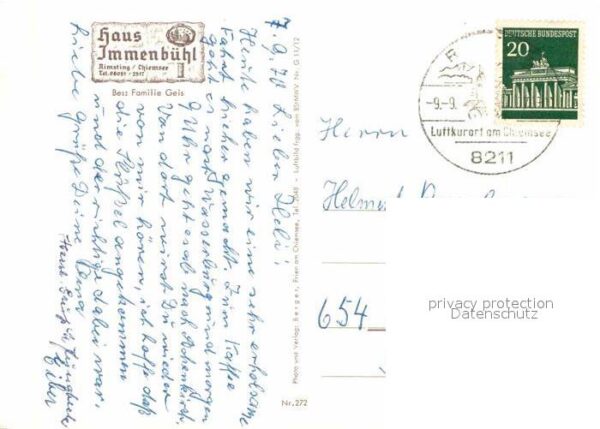 Haus
Immenbühl
Rimsting / Chiemsee
Tel. 08051 - 2917
Bes: Familie Geis
7. 9. 70 Lieber Heli!
Heute haben wir eine sehr erholsame
Fahrt hierher gemacht. Zum Kaffee
geht es nach Wasserburg und morgen
9 Uhr geht es ab nach
Von dort wirst Du wieder
von mir hören, ich hoffe daß
die Stiefel angekommen
und der richtige dabei war,
Liebe Grüße Deine
Photo und Verlag: Berger, Prien am Chiemsee, Tel. 2048 - Luftbild frgg. vom BStMfWV Nr. G 11/12
Nr. 272
DEUTSCHE BUNDESPOST
20
-9.-9.
Luftkurort am Chiemsee
8211
Herrn
654
privacy protection
Datenschutz